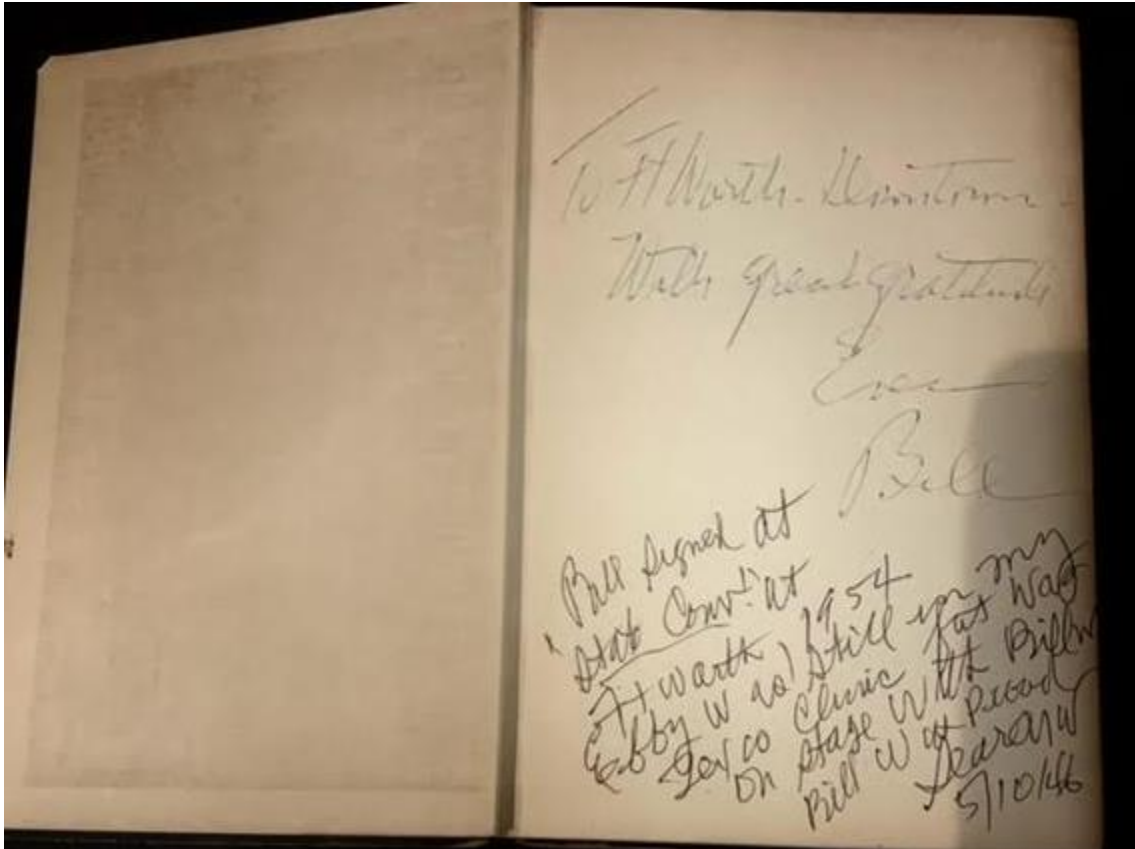 To Ft Worth - Downtown -
With great gratitude
Ever
Bill
Bill signed at
"State Conv." at
Ft Worth, 1954
Ebby W was still in my
Texas Clinic Pat was
on stage with Bill W
Bill W ut Proud
Searcy W
5/10/46